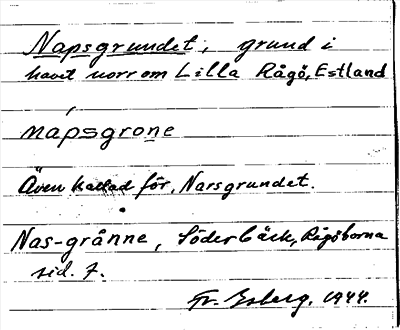 Napsgrundet; grund i
havet norr om Lilla Rågö, Estland
nápsgrone
Även kallad för, Narsgrundet.
Nas-grånne, Söderbäck, Rågöborna
sid. 7.
Fr. 1944.